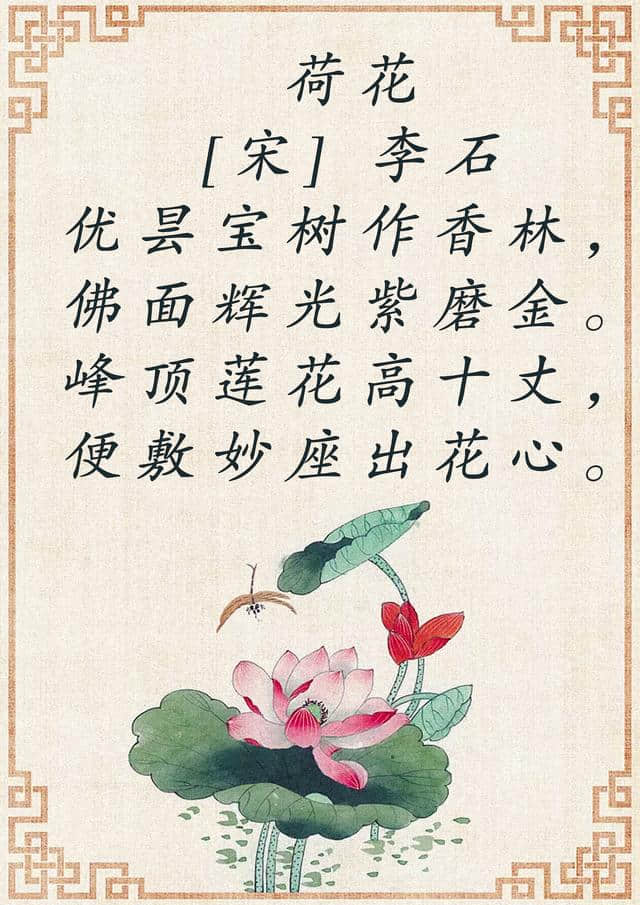 荷花
[宋] 李石
优昙宝树作香林，
佛面辉光紫磨金。
峰顶莲花高十丈，
便敷妙座出花心。